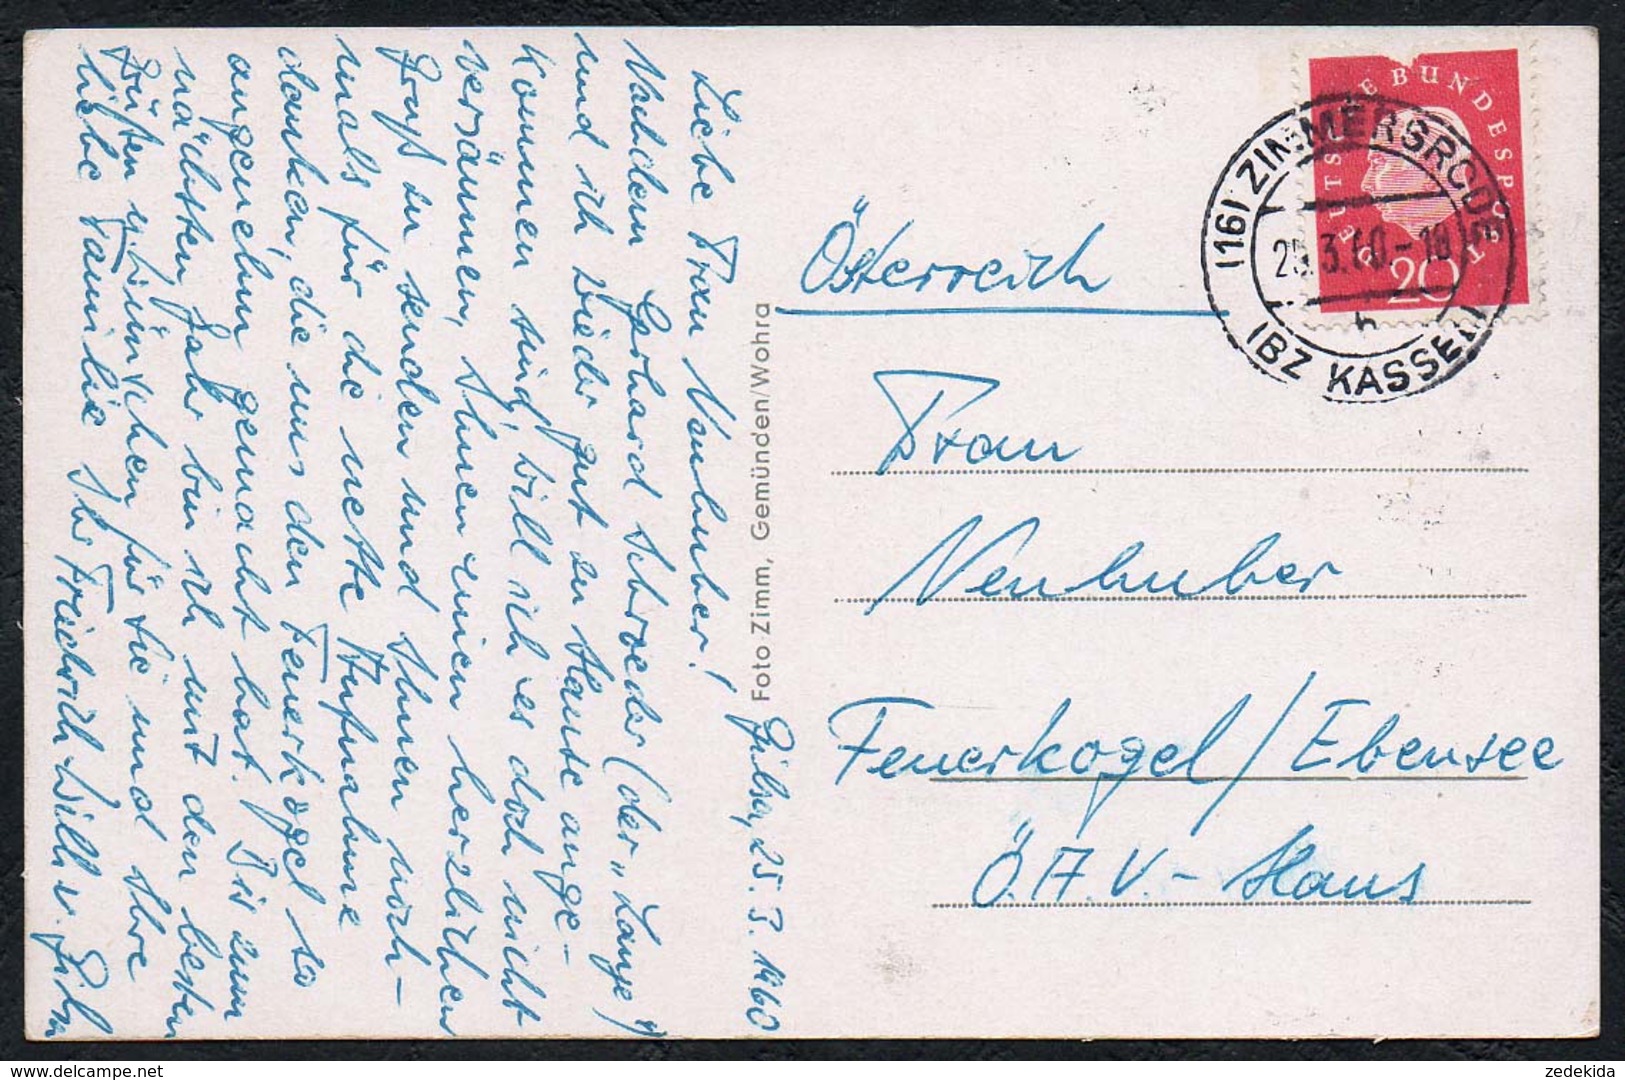 Gilsa, 25. 3. 1960
Liebe Frau Neuhuber!
Nachdem Gerhard Schroeder (der „Lange")
und ich wieder gut zu Hause ange-
kommen sind, will ich es doch nicht
versäumen, Ihnen einen herzlichen
Gruß zu senden und Ihnen noch-
mals für die nette Aufnahme
danken, die uns den Feuerkogel so
angenehm gemacht hat. Bis zum
nächsten Jahr bin ich mit den besten
Grüßen u. Wünschen für Sie und Ihre
liebe Familie Ihr Friedrich Will v.
Foto Zimm, Gemünden/Wohra
DEUTSCHE BUNDESPOST
20
(16) ZIMMERSRODE
25.3.60.-18
h
(BZ KASSEL)
Österreich
Frau
Neuhuber
Feuerkogel/Ebensee
Ö.A.V.-Haus
zedekida